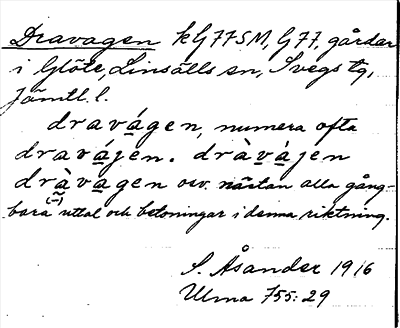 Dravagen kG77SM, G77, gårdar
i Glöte, Linsälls sn, Svegs tg,
Jämtl. l.
dravágen, numera ofta
dravájen. dràvájen
dràvagen osv. nästan alla gång-
(-)
bara uttal och betoningar i denna riktning.
S. Åsander 1916
Ulma 755:29